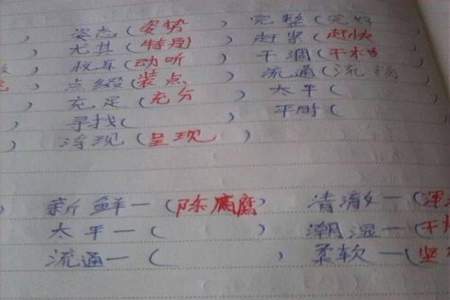 ） 姿态（姿势 ） 完整（完好
） 尤其（特别 ） 赶紧（赶快
） 悦耳（动听 ） 干涸（干枯
） 点缀（装点 ） 流通（流畅
） 充足（充分 ） 太平（
） 寻找（ ） 平时（
） 浮现（呈现 ）
） 新鲜一（陈腐 ） 清澈一（浑
太平一（ ） 潮湿一（干
流通一（ ） 柔软一（坚